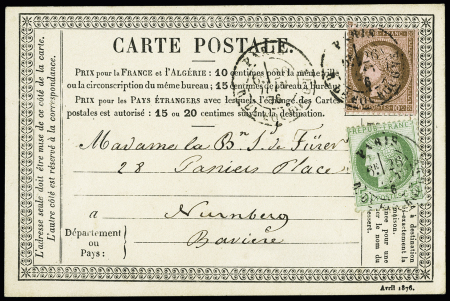 CARTE POSTALE.
PRIX POUR LA FRANCE ET L'ALGÉRIE: 10 centimes pour la même ville
ou la circonscription du même bureau; 15 centimes de bureau à bureau.
PRIX POUR LES PAYS ÉTRANGERS avec lesquels l'échange des Cartes
postales est autorisé: 15 ou 20 centimes suivant la destination.
L'adresse seule doit être mise de ce côté de la carte.
L'autre côté est réservé à la correspondance.
REPUB FRANC
PARIS
Madame la Bne S. de Fürer
28 Paniers Place
à Nürnberg
Département
ou
Pays:
Bavière
Avril 1876.